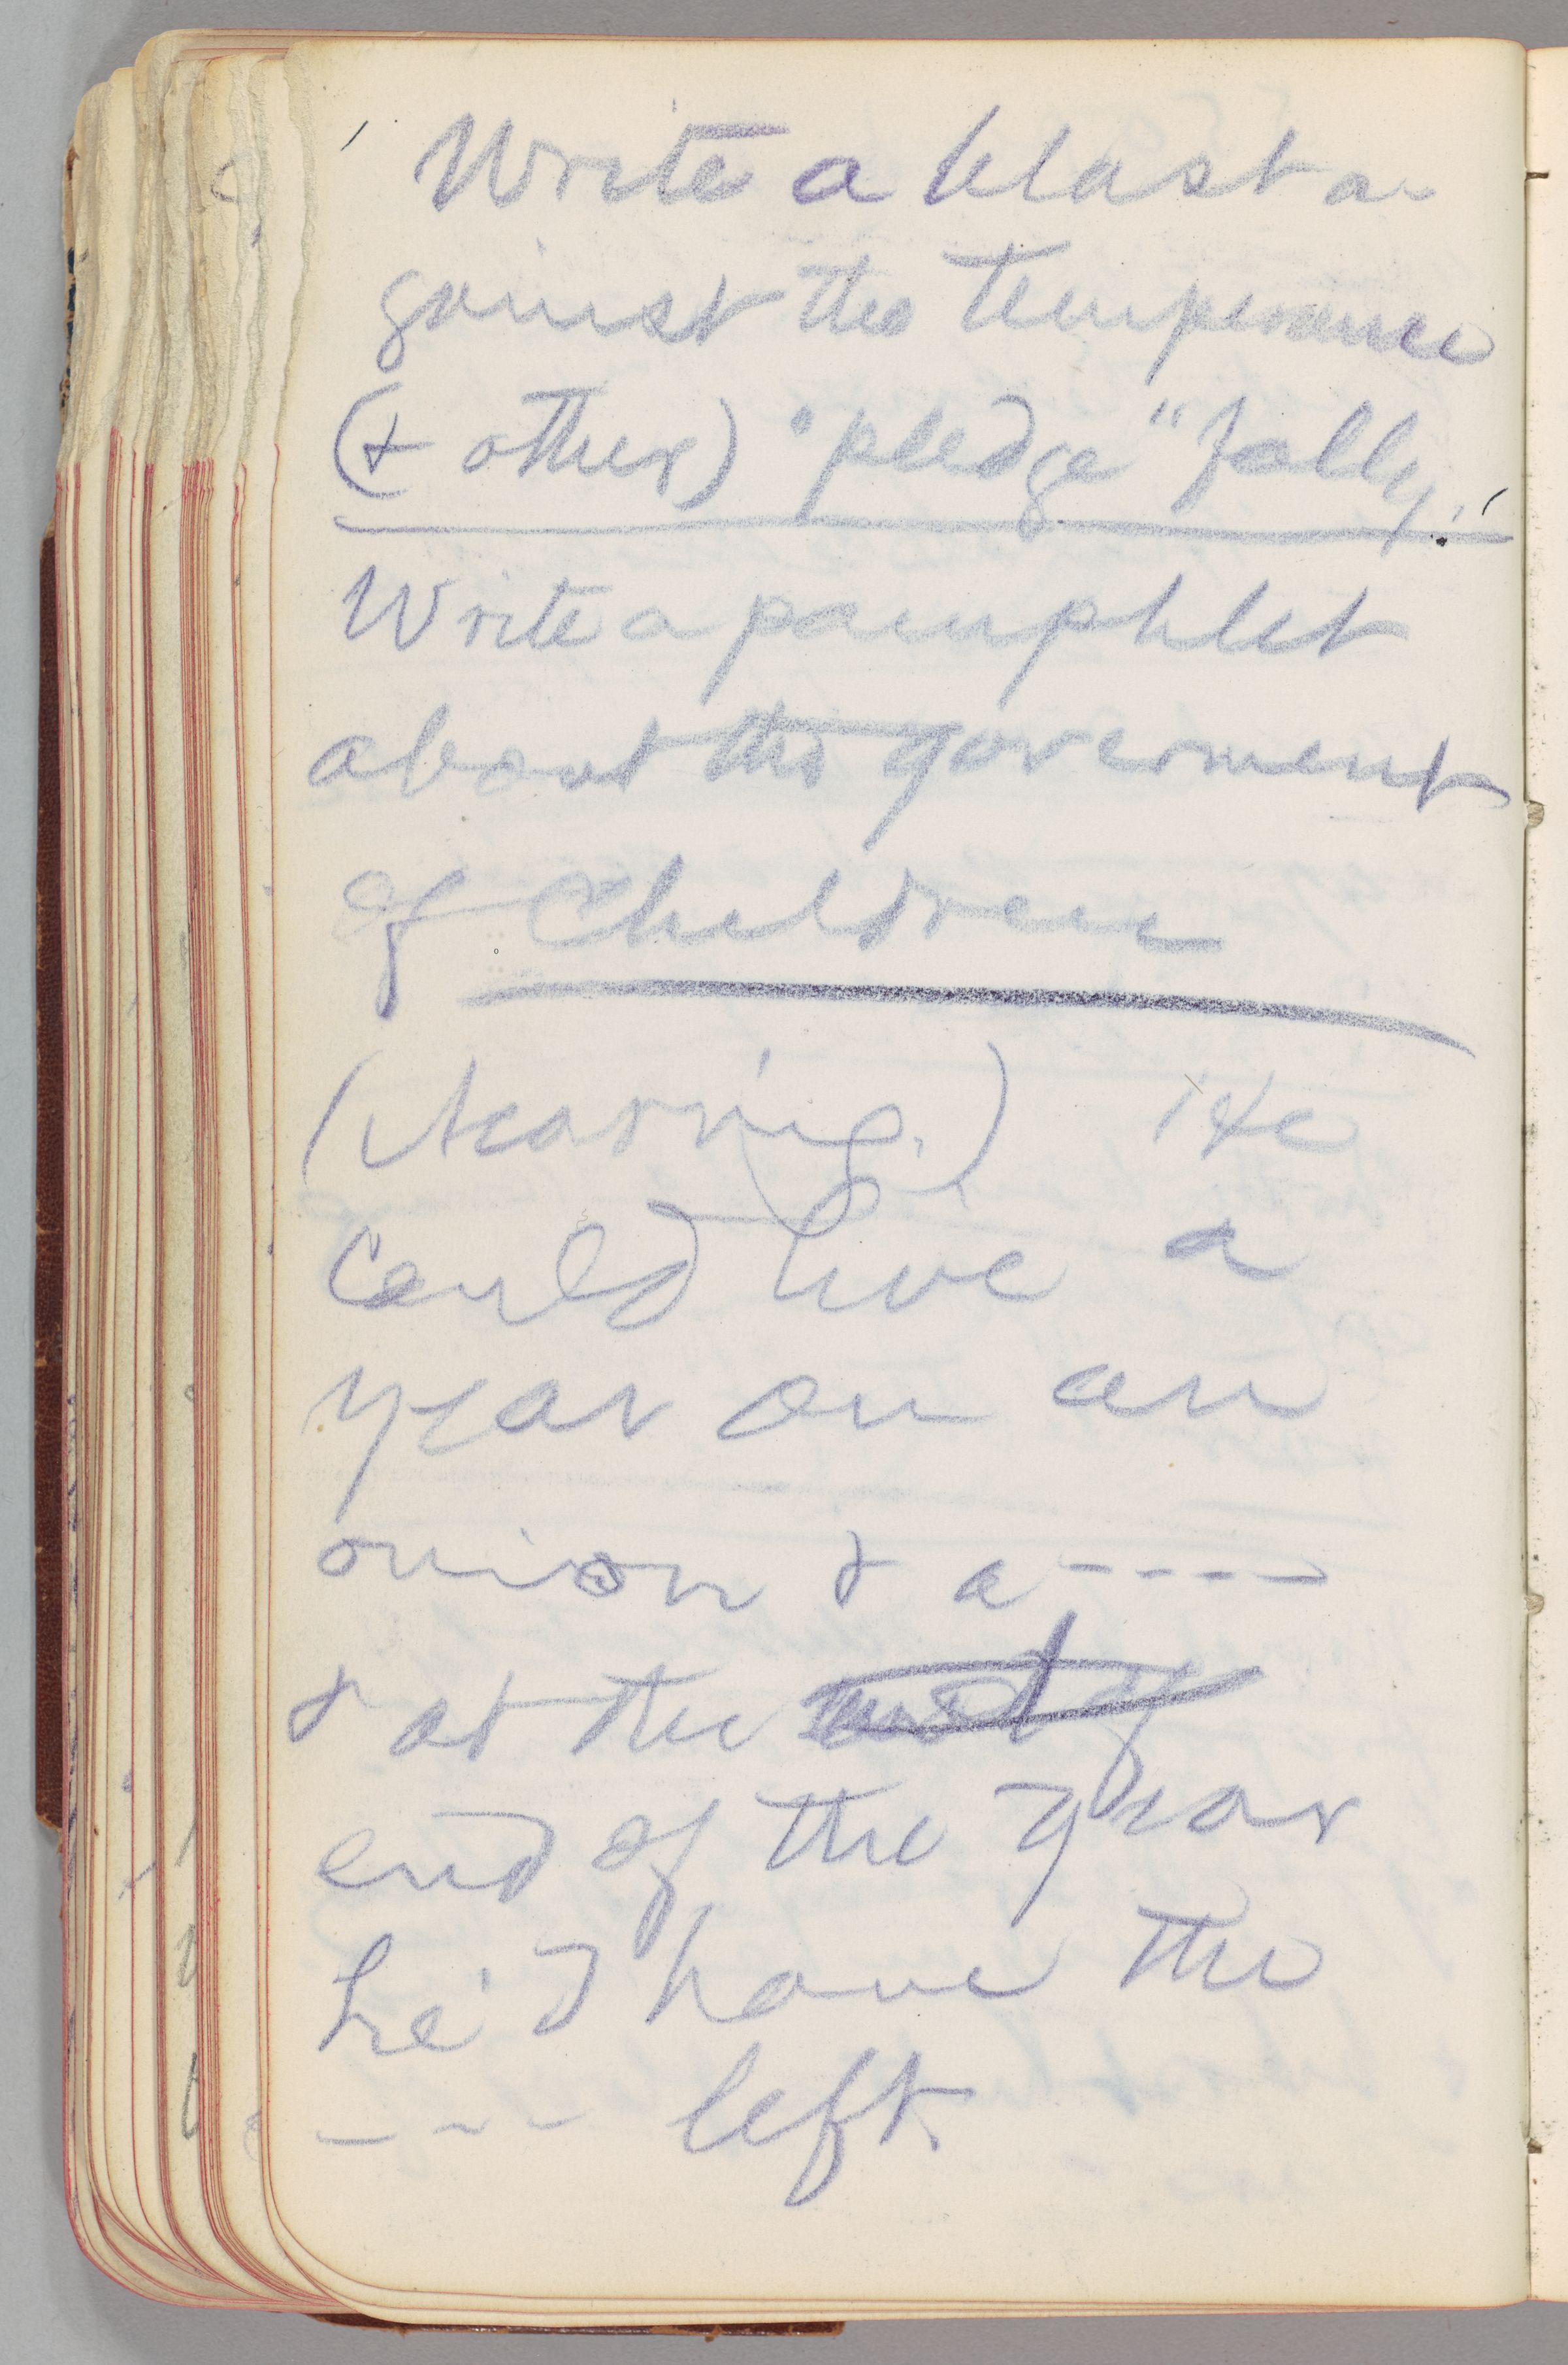 Write a blast a-
gainst the temperance
(& other) "pledge" folly.
Write a pamphlet
about the government
of Children
He
Could live a
year on an
onion & a ----
& at the
end of the year
he'd have the
--- left.